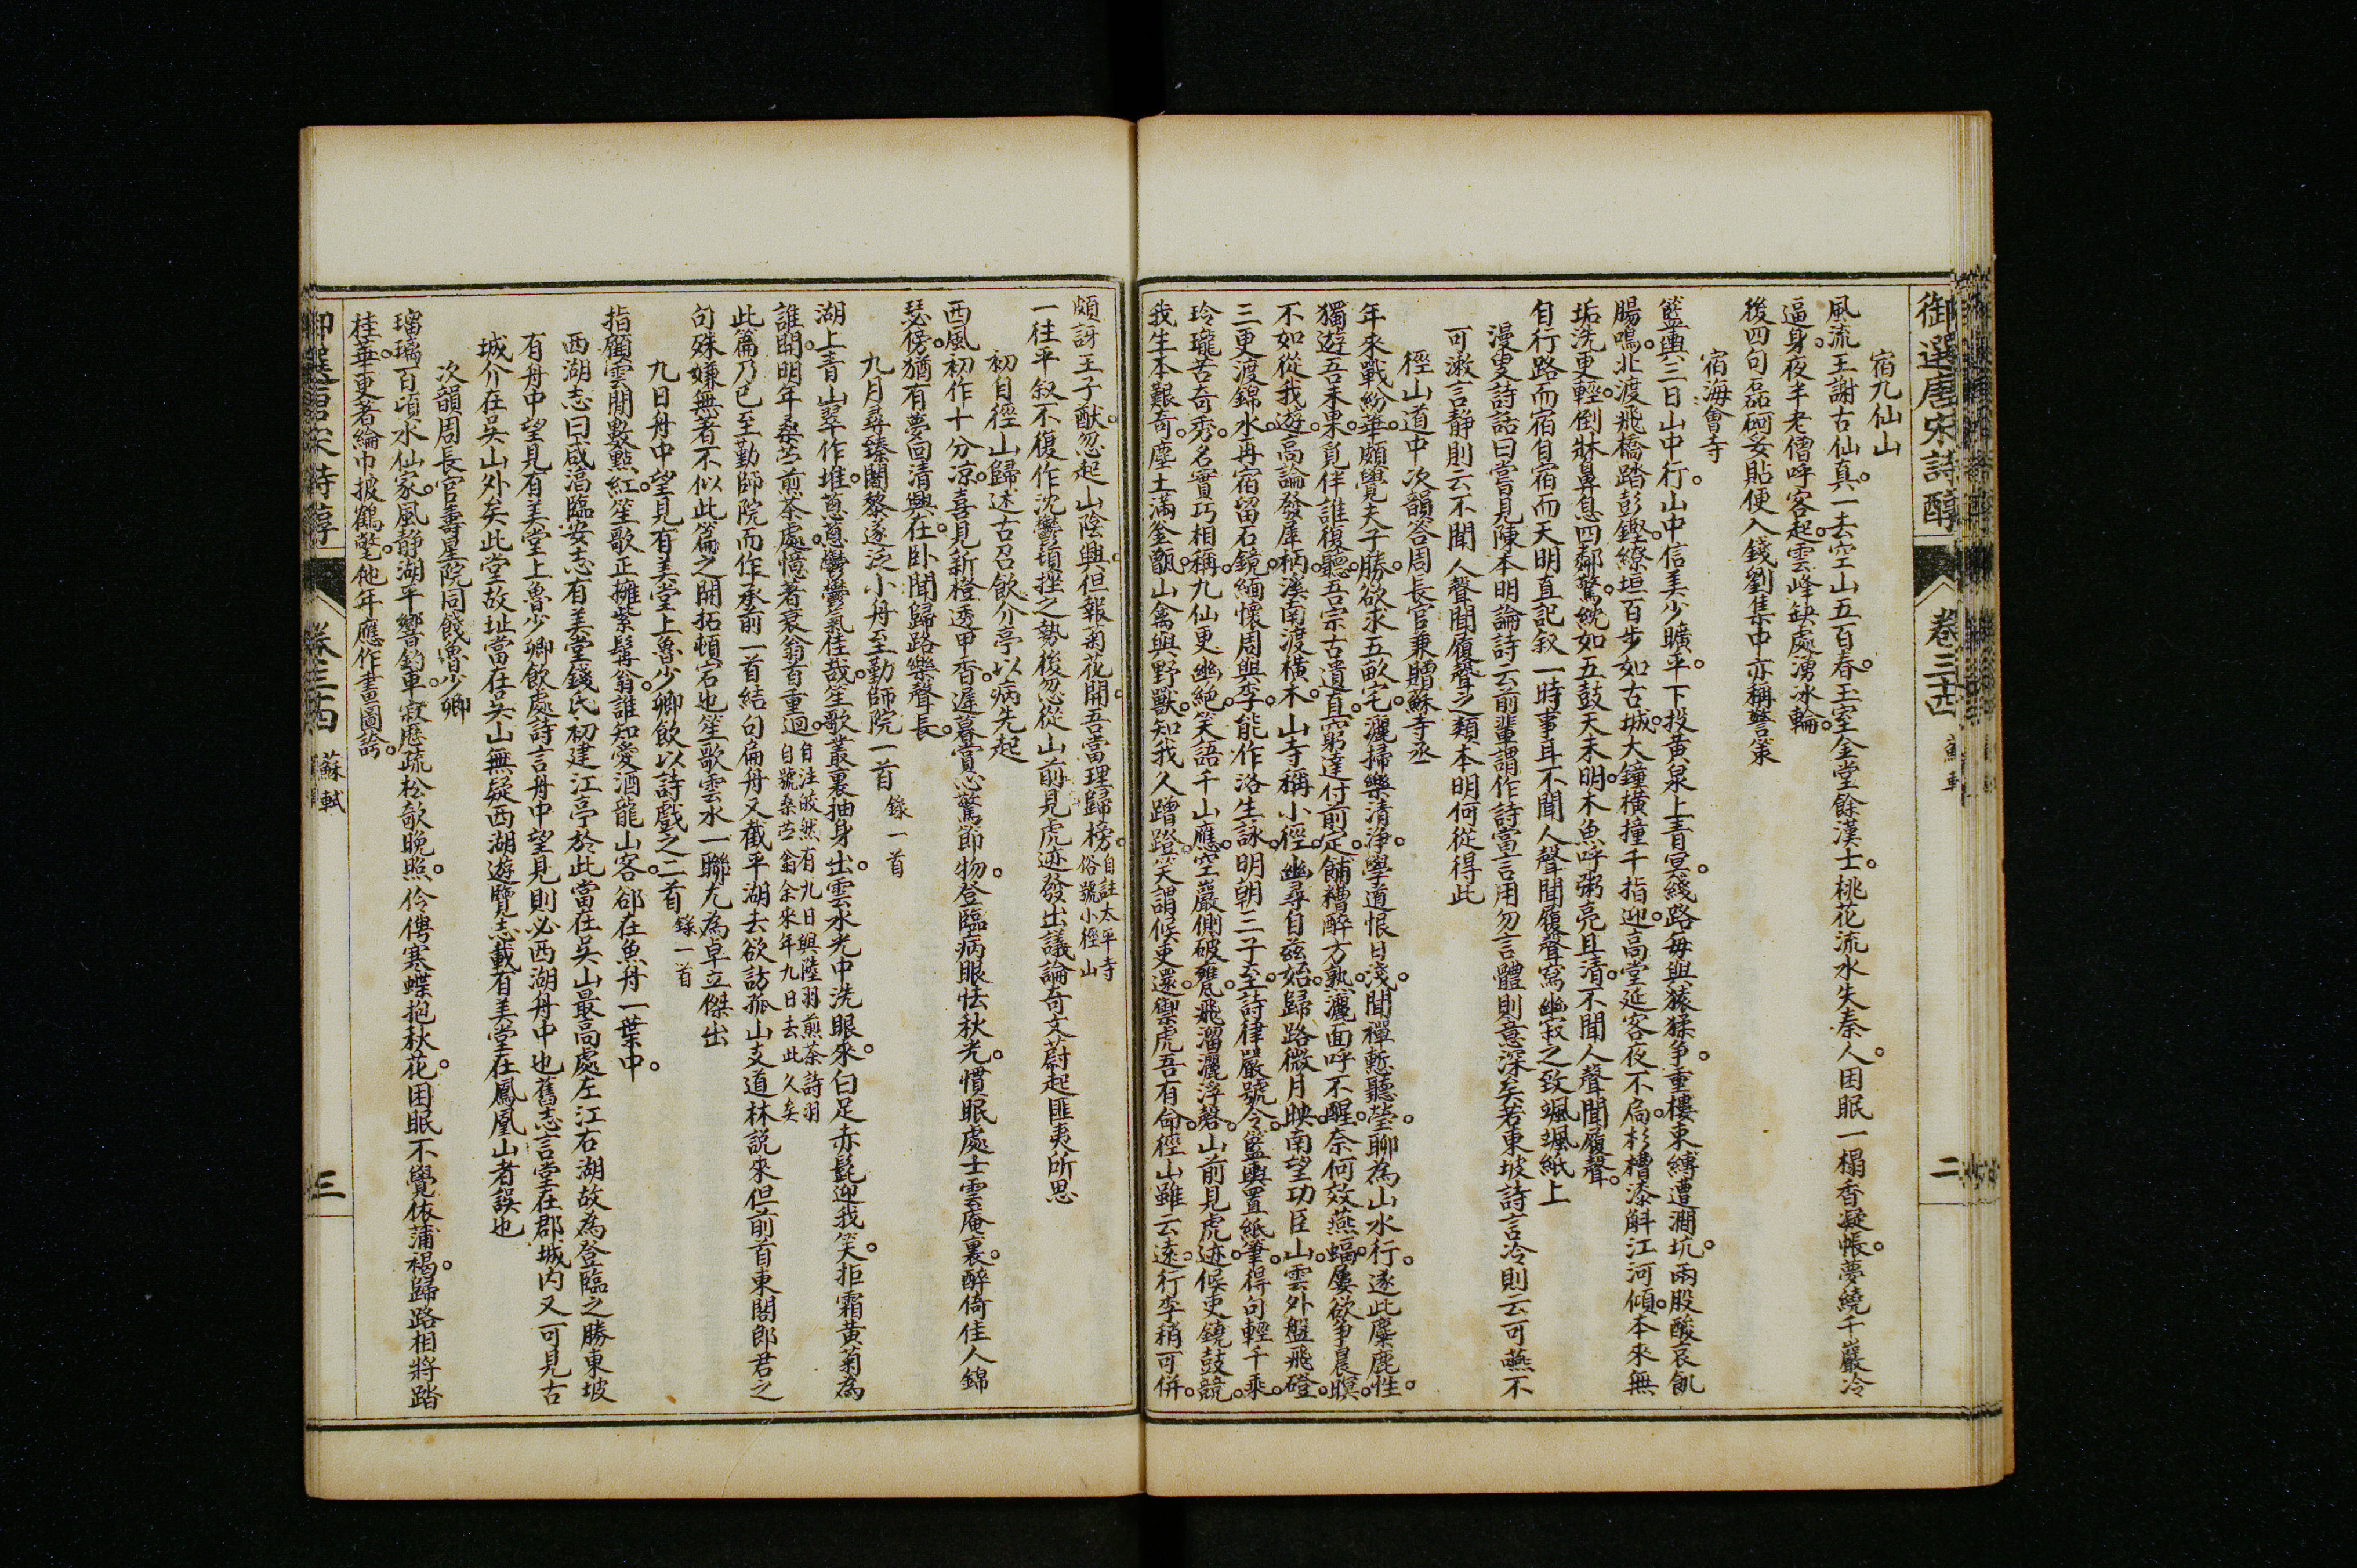 御選唐宋詩醇 卷三十四 蘇軾 二
宿九仙山
風流王謝古仙真一去空山五百春玉室金堂餘漢士桃花流水失秦人困眠一榻香凝帳夢繞千巖冷
逼身夜半老僧呼客起雲峰缺處湧冰輪
後四句磊砢妥貼便入錢劉集中亦稱警策
宿海會寺
籃輿三日山中行山中信美少曠平下投黃泉上青冥綫路每與猿猱爭重樓束縛遭澗坑兩股酸哀飢
腸鳴北渡飛橋踏彭鏗繚垣百步如古城大鐘橫撞千指迎高堂延客夜不扃杉槽漆斛江河傾本來無
垢洗更輕倒牀鼻息四鄰驚紞如五鼓天未明木魚呼粥亮且清不聞人聲聞履聲
自行路而宿自宿而天明直記叙一時事耳不聞人聲聞履聲寫幽寂之致颯颯紙上
漫叟詩話曰嘗見陳本明論詩云前輩謂作詩當言用勿言體則意深矣若東坡詩言冷則云可嚥不
可漱言静則云不聞人聲聞履聲之類本明何從得此
徑山道中次韻答周長官兼贈蘇寺丞
年來戰紛華頗覺夫子勝欲求五畝宅灑掃樂清淨學道恨日淺聞禪慙聽瑩聊為山水行遂此麋鹿性
獨遊吾未果覓伴誰復聽吾宗古遺直窮達付前定餔糟醉方熟灑面呼不醒奈何效燕蝠屢欲爭晨暝
不如從我遊高論發犀柄溪南渡橫木山寺稱小徑幽尋自兹始歸路微月映南望功臣山雲外盤飛磴
三更渡錦水再宿留石鏡緬懷周與李能作洛生詠明朝三子至詩律嚴號令籃輿置紙筆得句輕千乘
玲瓏苦奇秀名實巧相稱九仙更幽絕笑語千山應空巖側破甕飛溜灑浮磬山前見虎迹候吏鐃鼓競
我生本艱奇塵土滿釜甑山禽與野獸知我久蹭蹬笑謂候吏還禦虎吾有命徑山雖云遠行李稍可併
頗訝王子猷忽起山陰興但報菊花開吾當理歸榜自註太平寺俗號小徑山
一往平叙不復作沈鬱頓挫之勢後忽從山前見虎迹發出議論奇文蔚起匪夷所思
初自徑山歸述古召飲介亭以病先起
西風初作十分涼喜見新橙透甲香遲暮賞心驚節物登臨病眼怯秋光慣眠處士雲庵裏醉倚佳人錦
瑟傍猶有夢回清興在卧聞歸路樂聲長
九月尋臻闍黎遂泛小舟至勤師院二首錄一首
湖上青山翠作堆蔥蔥鬱鬱氣佳哉笙歌叢裏抽身出雲水光中洗眼來白足赤髭迎我笑拒霜黃菊為
誰開明年桑苧煎茶處憶著衰翁首重迴自注皎然有九日與陸羽煎茶詩羽自號桑苧翁余來年九日去此久矣
此篇乃已至勤師院而作承前一首結句扁舟又截平湖去欲訪孤山支道林説來但前首東閣郎君之
句殊嫌無著不似此篇之開拓頓宕也笙歌雲水一聯尤為卓立傑出
九日舟中望見有美堂上魯少卿飲以詩戲之二首錄一首
指顧雲間數點紅笙歌正擁紫髯翁誰知愛酒龍山客郤在魚舟一葉中
西湖志曰咸淳臨安志有美堂錢氏初建江亭於此當在吳山最高處左江右湖故為登臨之勝東坡
有舟中望見有美堂上魯少卿飲處詩言舟中望見則必西湖舟中也舊志言堂在郡城内又可見古
城介在吳山外矣此堂故址當在吳山無疑西湖遊覽志載有美堂在鳳凰山者誤也
次韻周長官壽星院同餞魯少卿
瑠璃百頃水仙家風静湖平響釣車寂歷疏松欹晚照伶俜寒蝶抱秋花困眠不覺依蒲褐歸路相將踏
桂華更著綸巾披鶴氅他年應作畫圖誇
御選唐宋詩醇 卷三十四 蘇軾 三